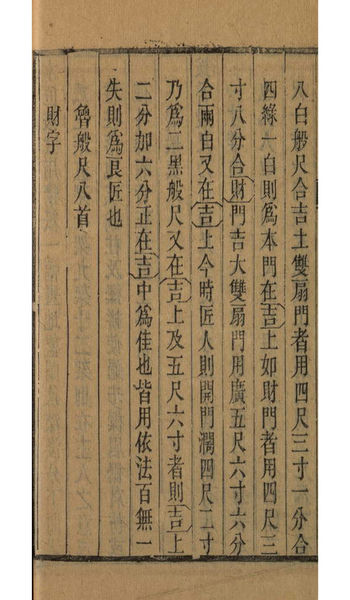 八白般尺合吉土雙扇門者用四尺三寸一分合
四綠一白則為本門在吉上如財門者用四尺三
寸八分合財門吉大雙扇門用廣五尺六寸六分
合兩白又在吉上今時匠人則開門濶四尺二寸
乃為二黑般尺又在吉上及五尺六寸者則吉上
二分加六分正在吉中為佳也皆用依法百無一
失則為良匠也
魯般尺八首
財字